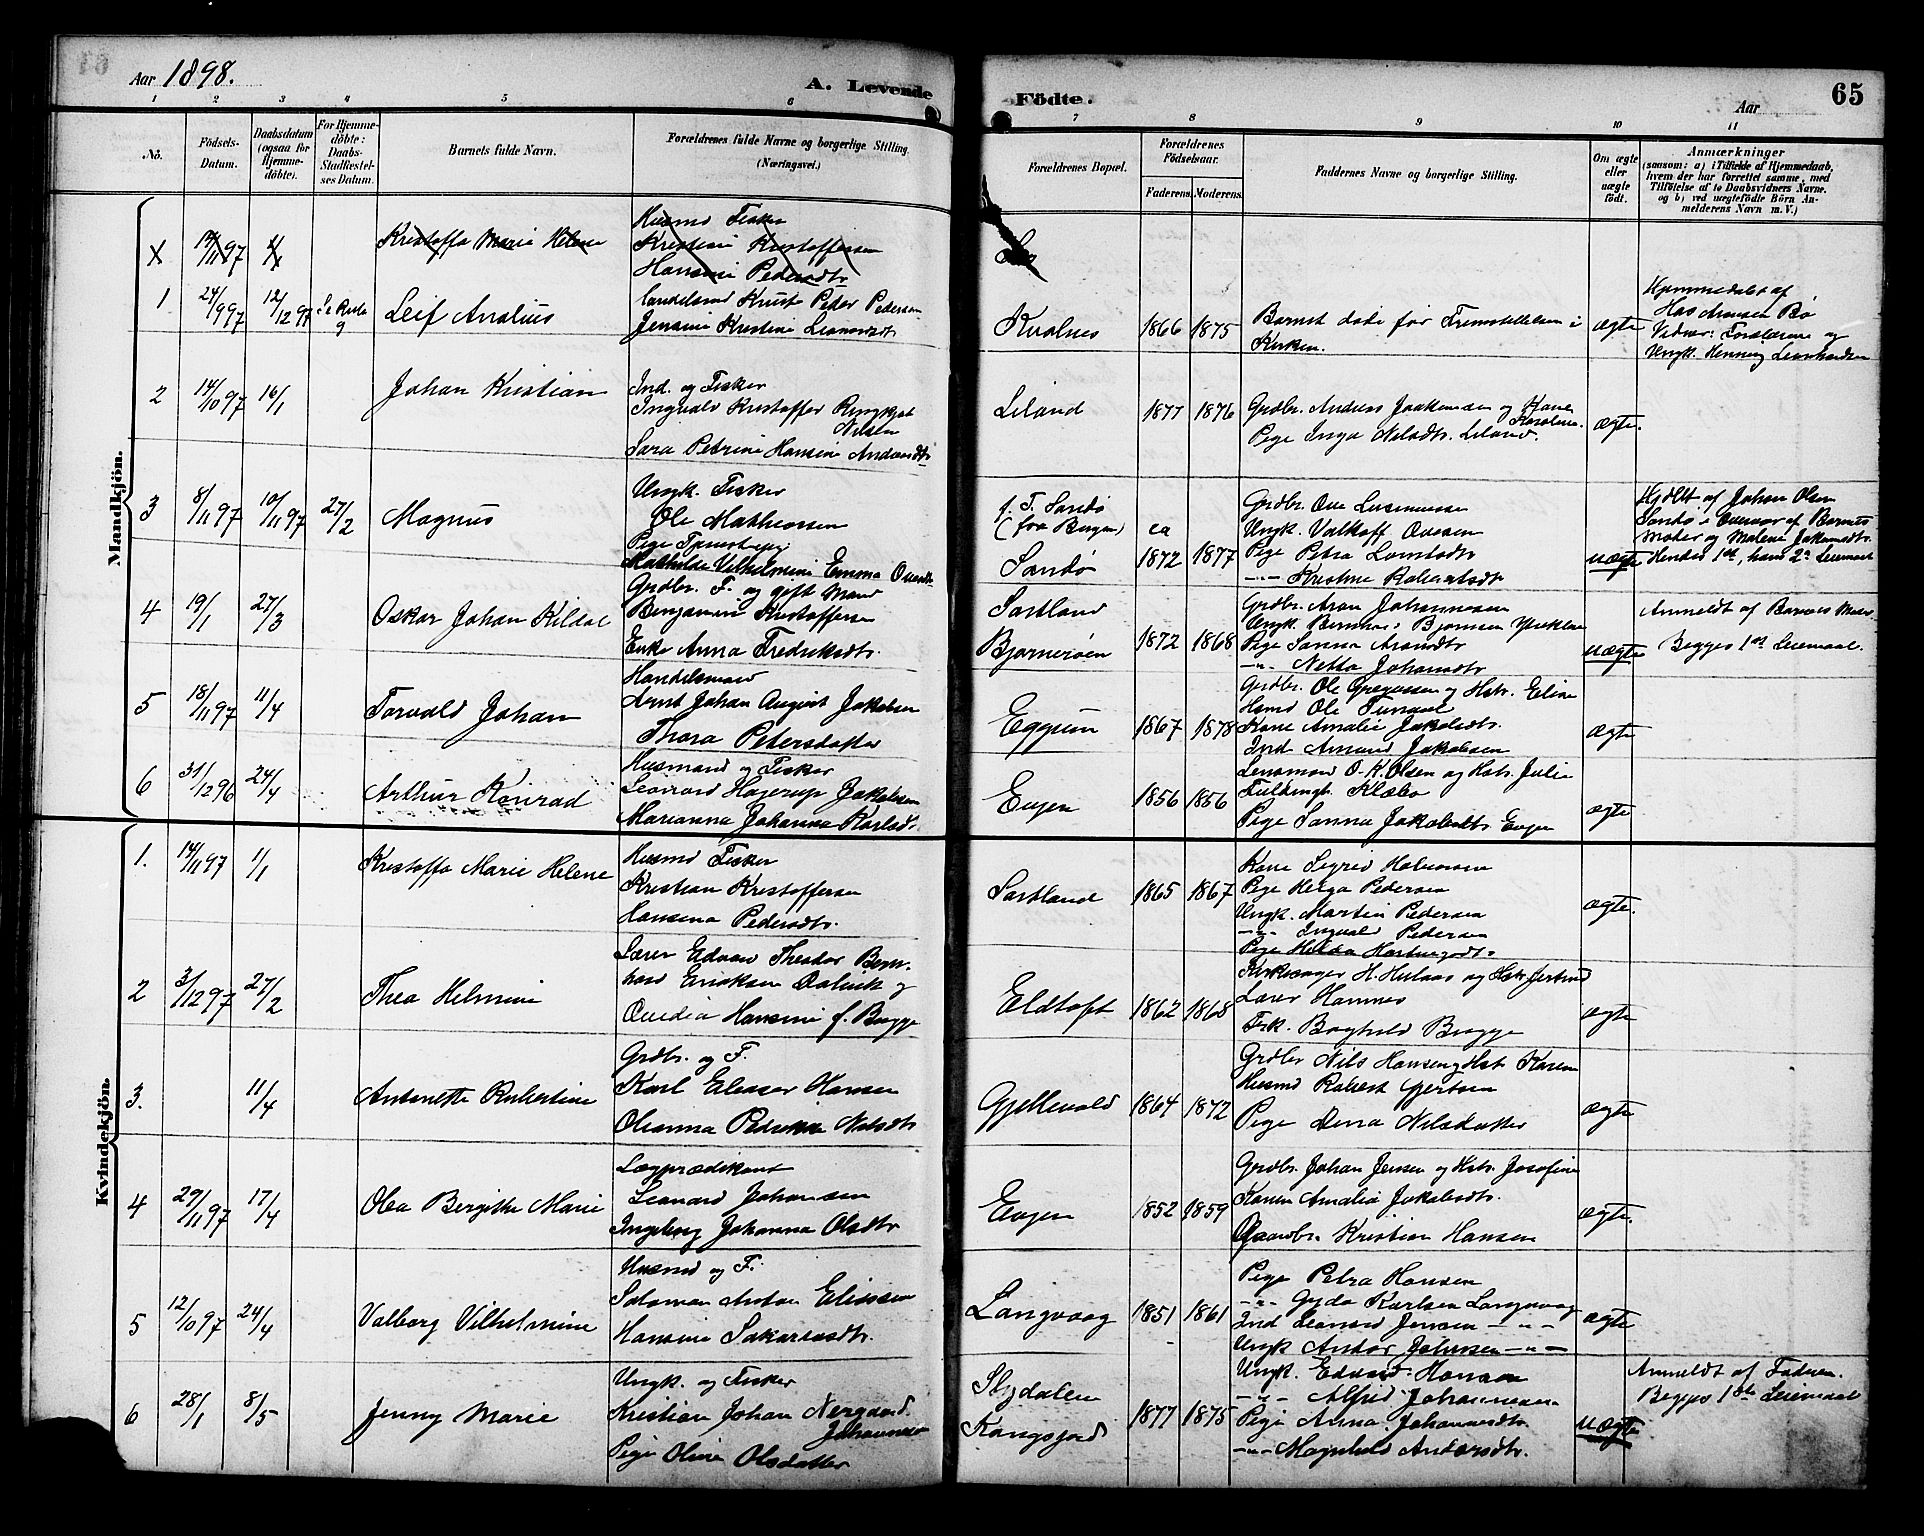 Aar 1898.
A. Levende
Födte.
Aar
65
1 2 3 4 5 6 7 8 9 10 11
No.
Födsels-Datum.
Daabsdatum (ogsaa for Hjemme-döbte).
For Hjemme-döbte: Daabs-Stadfæstelses Datum.
Barnets fulde Navn.
Forældrenes fulde Navne og borgerlige Stilling (Næringsvei.)
Forældrenes Bopæl.
Forældrenes Födselsaar.
Faderens. Moderens.
Faddernes Navne og borgerlige Stilling.
Om ægte eller uægte födt.
Anmærkninger
(saasom: a) i Tilfælde af Hjemmedaab,
hvem der har forrettet samme, med
Tilföielse af to Daabsvidners Navne.
og b) ved uægtefödte Börn An-
melderens Navn m. V.)
Mandkjön.
Kristoffa Marie Helene
Husmd Fisker
Kristian Kristoffersen
Hansine Pedersdtr
1 24/9 97 12/12 97
Leif Analius
Handelsmd Krist Peder Pedersen
Jensine Kristine Leonardt
Kvalnes 1866 1875
Barnet döde för Fremstillelsen i
Kirken.
ægte
Hjemmedöbt af
Hans Hansen Bö
Vidner: Forældrene og
Ungk. Henning Leonhardsen
2 14/10 97 16/1
Johan Kristian
Ind. og Fisker
Ingvald Kristoffer
Nilsen
Sara Petrine Hansine Andersdtr
Leland 1877 1876
Grdbr. Andreas Joakimsen og Kone
Pige Inga Nilsdtr. Leland.
ægte.
3 8/11 97 10/11 97 27/2
Magnus
Ungk. Fisker
Ole Matheasen
Pige Tjenestepige
Mathilde Vilhelmine Emma Ovesdtr
f. T. Sandö
(fra Bergen)
Sandö
ca
1872 1877
Grdbr. Ove
Ungk. Valkoff Ovesen
Pige Petra
-"- Kristine Robertsdtr
uægte
Hjdöbt af Johan Olsen
Sandö i Overvær af Barnets
Moder og Malene Jakobsdtr.
Hendes 1st, hans 2t Leiermaal
4 19/1 27/3
Oskar Johan Kildal
Grdbr. F. og gift Mand
Benjamin Kristoffersen
Enke Anna Fredriksdtr.
Sortland
Bjørnerøen 1872 1868
Grdbr. Aron Johannesen
Ungk. Bernhas Bjørnsen
Pige Sanna Aronsdtr
-"- Netta Johansdtr
uægte
Anmeldt af Barnets Moder
Begges 1st Leiermaal.
5 18/11 97 11/4
Torvald Johan
Handelsmand
Arnt Johan August Jakobsen
Thora Petersdatter
Eggum 1867 1878
Grdbr. Ole Gregussen og Hstr. Eline
Hsmd Ole
Kone Amalie Jakobsdtr.
Ind. Amand Jakobsen
ægte
6 31/12 96 24/4
Arthur Konrad
Husmand og Fisker
Leonard Hagerup Jakobsen
Marianna Johanna Karlsdtr
Evjen 1856 1856
Lensmand O. K. Olsen og Hstr. Julie
Fuldmægt. Klæbo
Pige Sanna Jakobsdtr. Evjen
ægte
Kvindekjön.
1. 14/11 97 1/1
Kristoffa Marie Helene
Husmd Fisker
Kristian Kristoffersen
Hansina Pedersdtr.
Sortland 1865 1867
Kone Sigrid
Pige Helga Pedersen
Ungk. Martin Pedersen
-"- Ingvald Pedersen
Pige Hilda
ægte.
2 3/12 97 27/2
Thea Helmine
Lærer Edvard Theodor Bern-
hard Eriksen Dolvik og
Ovedia Hansine f. Bugge
Eldtoft 1862 1868
Kirkesanger H. Hulaas og Hstr. Jertrud
Lærer Hannes
Frk. Borghild Bugge
ægte
3. 11/4
Antonette Robertine
Grdbr. og F.
Karl Eleaser Hansen
Oleanna Pedrikke Nilsdtr
Gjellevold 1864 1872
Grdbr Nils Hansen og Hst Karen
Husmd Robert Gjertsen
Pige Dina Nilsdatter
ægte
4 29/11 97 17/4
Olea Bergitte Marie
Lægprædikant
Leonard Johansen
Ingeborg Johanna Olsdtr
Evjen 1852 1859
Grdbr. Johan Jensen og Hstr. Josefine
Karen Amalia Jakobsdtr.
Gaardbr. Kristian Hansen
ægte.
5 12/10 97 24/4
Valborg Vilhelmine
Husmd og F.
Salomon Anton Eliassen
Hansine Sakariasdtr.
Langvaag 1851 1861
Pige Petra Hansen
-"- Gyda Karlsen Langvaag
Ind Leonard Jensen -"-
Ungk Andor Johnsen -"-
ægte
6 28/1 8/5
Jenny Marie
Ungk. og Fisker
Kristian Johan Nergaard
Johannesen
Pige Oline Olsdatter
Slydalen
Kongsjord 1877 1875
Ungk. Edvard Hansen
-"- Alfred Johannesen
Pige Anna Johannesdtr
-"- Magnhild Andersdtr.
uægte
Anmeldt af Faderen.
Begges 1ste Leiermaal